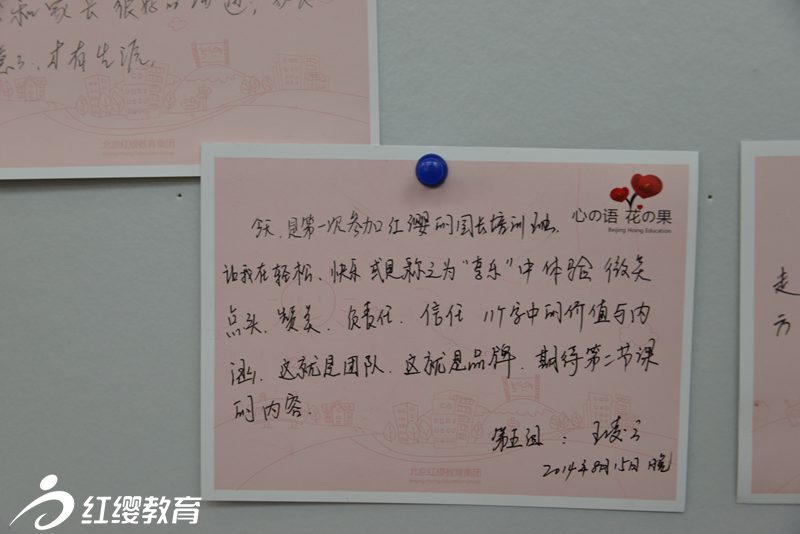 和家长很好的沟通，
才有生源。
北京红缨教育集团
Beijing Hoing Education Group
心の语 花の果
Beijing Hoing Education
今天，是第一次参加红缨的园长培训
让我在轻松、快乐或是称之为“享乐”中体验 微笑
点头、赞美、负责任、信任 11个字中的价值与内
涵，这就是团队，这就是品牌，期待第二节课
的内容。
第五组：王凌云
2014年8月15日 晚
北京红缨教育集团
Beijing Hoing Education Group
走
方
红缨教育